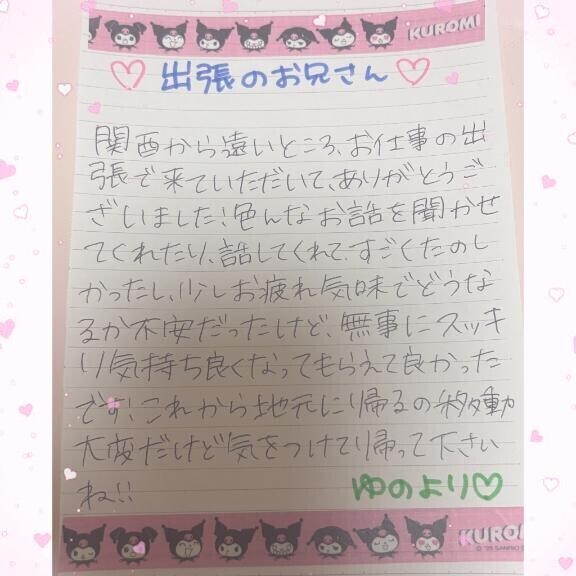 KUROMI
♡出張のお兄さん♡
関西から遠いところ、お仕事の出
張で来ていただいて、ありがとうご
ざいました!色んなお話を聞かせ
てくれたり、話してくれて、すごくたのし
かったし、少しお疲れ気味でどうな
るか不安だったけど、無事にスッキ
リ気持ち良くなってもらえて良かった
です!これから地元に帰るの移動
大変だけど気をつけて帰って下さい
ね!!
ゆのより♡
KUROMI